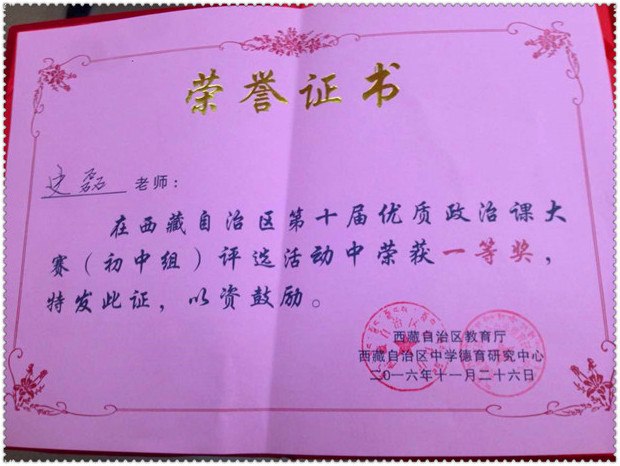 荣誉证书
磊 老师：
在西藏自治区第十届优质政治课大
赛（初中组）评选活动中荣获一等奖，
特发此证，以资鼓励。
西藏自治区教育厅
西藏自治区中学德育研究中心
二〇一六年十一月二十六日